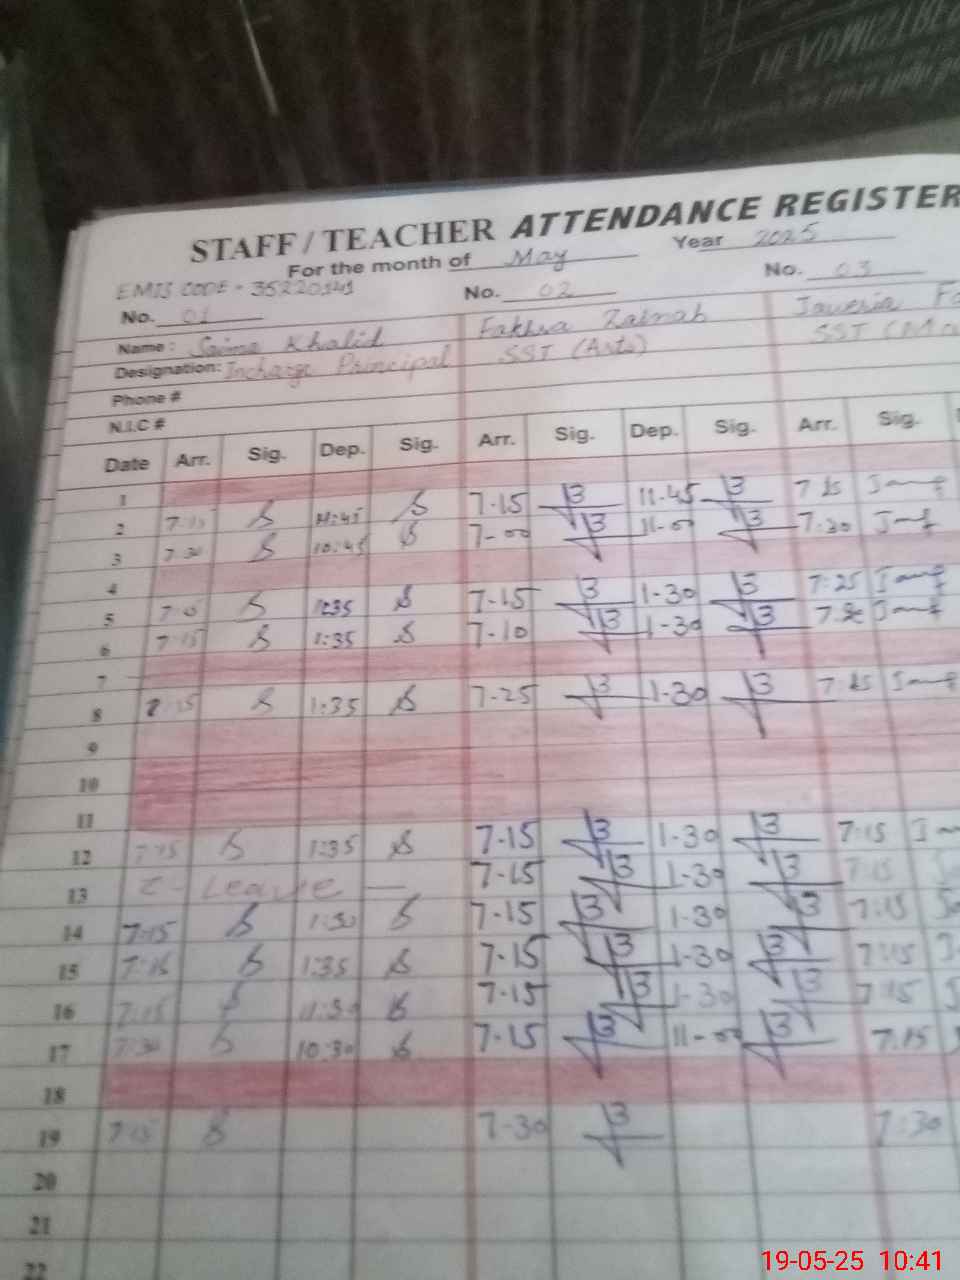 STAFF / TEACHER ATTENDANCE REGISTER
For the month of May Year 2025
EMIS CODE - 35220141
No. 01 No. 02 No. 03
Name: Saima Khalid Fakhra Zainab Javeria
Designation: Incharge Principal SST (Arts) SST
Phone #
N.I.C #
Date Arr. Sig. Dep. Sig. Arr. Sig. Dep. Sig. Arr. Sig.
1
2 7:15 11:45 7-15 11-45 7:25
3 7:30 10:45 7-00 11-00 7:20
4
5 1:35 7-15 1-30 7:25
6 7:15 1:35 7-10 1-30
7
8 7:15 1:35 7-25 1-30
9
10
11
12 7:15 1:35 7-15 1-30 7:15
13 C-Leave 7-15 1-30 7:15
14 7:15 1:30 7-15 1-30 7:15
15 7:15 1:35 7-15 1-30 7:15
16 7:15 11:30 7-15 1-30 7:15
17 7:30 10:30 7-15 11-00 7:15
18
19 7:15 7-30 7:30
20
21
22
19-05-25 10:41